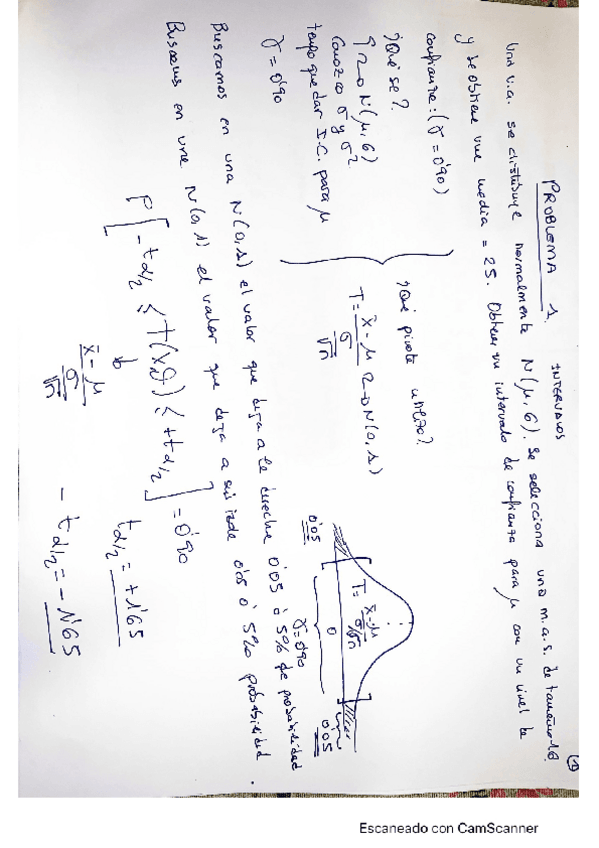 ①
PROBLEMA 1. INTERVALOS
Una v.a. se distribuye normalmente N(μ,6). Se selecciona una m.a.s. de tamaño
y se obtiene una media = 25. Obtener un intervalo de confianza para μ con un nivel de
confianza: (γ = 0'90)
¿Qué se?
N(μ,6)
conozco σ y σ²
tengo que dar I.C. para μ
γ = 0'90
¿Qué pivote utilizo?
T = x̄ - μ / σ/√n ~ N(0,1)
T = x̄ - μ / σ/√n
0
0'05
γ = 0'90
0'05
Buscamos en una N(0,1) el valor que deja a la derecha 0'05 ó 5% de probabilidad
Buscamos en una N(0,1) el valor que deja a su izda 0'05 ó 5% probabilidad.
P[-tα/2 ≤ T(x,θ) ≤ +tα/2] = 0'90
x̄ - μ / σ/√n
tα/2 = +1'65
- tα/2 = -1'65
Escaneado con CamScanner